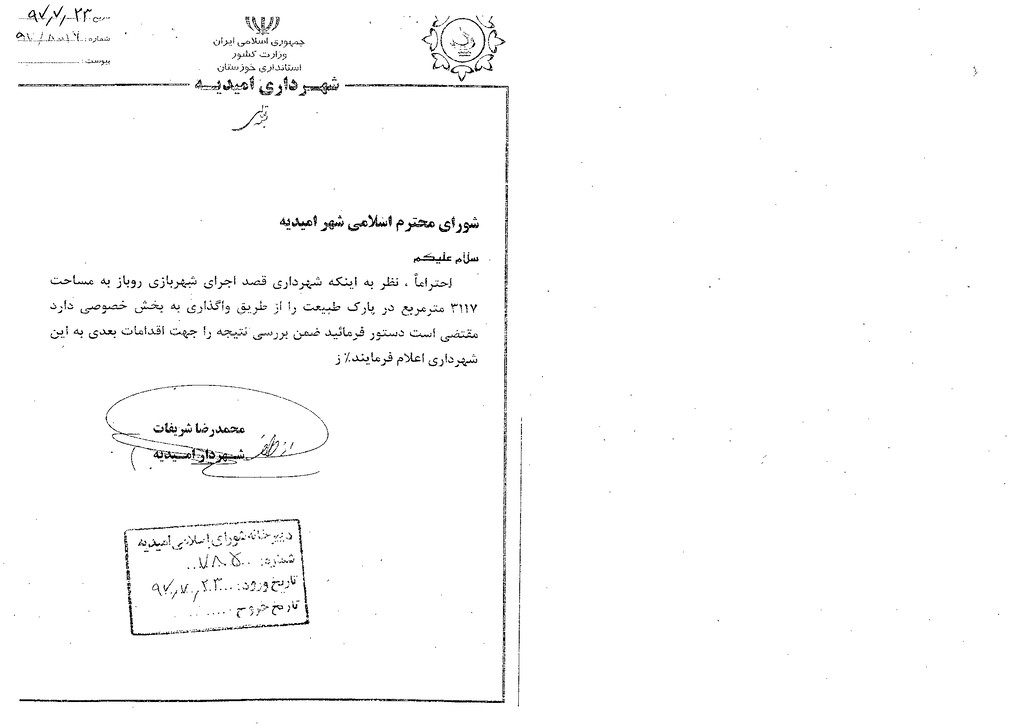 تاریخ ۹۷,۷,۲۳
شماره :
پیوست :
جمهوری اسلامی ایران
وزارت کشور
استانداری خوزستان
شهرداری امیدیه
شورای محترم اسلامی شهر امیدیه
سلام علیکم
احتراماً ، نظر به اینکه شهرداری قصد اجرای شهربازی روباز به مساحت
۳۱۱۷ مترمربع در پارک طبیعت را از طریق واگذاری به بخش خصوصی دارد
مقتضی است دستور فرمائید ضمن بررسی نتیجه را جهت اقدامات بعدی به این
شهرداری اعلام فرمایند٪ ز
محمدرضا شریفات
شهردار امیدیه
دبیرخانه شورای اسلامی امیدیه
شماره:
تاریخ ورود: ۹۷,۷,۲۳
تاریخ خروج